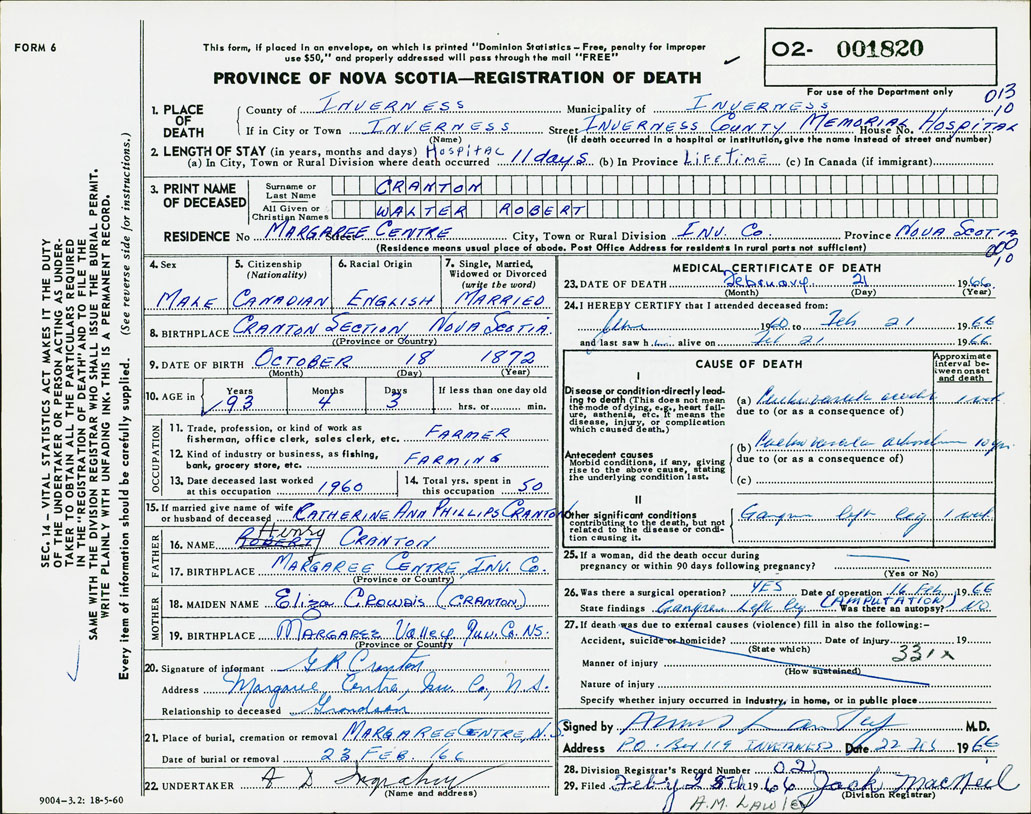 FORM 6
This form, if placed in an envelope, on which is printed "Dominion Statistics – Free, penalty for improper
use $50," and properly addressed will pass through the mail "FREE"
PROVINCE OF NOVA SCOTIA—REGISTRATION OF DEATH
02- 001820
For use of the Department only
013
10
1. PLACE OF DEATH
County of INVERNESS Municipality of INVERNESS
If in City or Town INVERNESS Street INVERNESS COUNTY MEMORIAL House No. HOSPITAL
(Name) (If death occurred in a hospital or institution, give the name instead of street and number)
2. LENGTH OF STAY (in years, months and days) HOSPITAL
(a) In City, Town or Rural Division where death occurred 11 days (b) In Province LIFETIME (c) In Canada (if immigrant)
3. PRINT NAME OF DECEASED
Surname or Last Name CRANTON
All Given or Christian Names WALTER ROBERT
RESIDENCE No MARGAREE CENTRE Street City, Town or Rural Division INV. CO. Province NOVA SCOTIA
(Residence means usual place of abode. Post Office Address for residents in rural parts not sufficient)
000
10
4. Sex MALE
5. Citizenship (Nationality) CANADIAN
6. Racial Origin ENGLISH
7. Single, Married, Widowed or Divorced (write the word) MARRIED
8. BIRTHPLACE CRANTON SECTION NOVA SCOTIA
(Province or Country)
9. DATE OF BIRTH OCTOBER 18 1872
(Month) (Day) (Year)
10. AGE in Years 93 Months 4 Days 3 If less than one day old
hrs. or min.
OCCUPATION
11. Trade, profession, or kind of work as
fisherman, office clerk, sales clerk, etc. FARMER
12. Kind of industry or business, as fishing,
bank, grocery store, etc. FARMING
13. Date deceased last worked
at this occupation 1960
14. Total yrs. spent in
this occupation 50
15. If married give name of wife
or husband of deceased CATHERINE ANN PHILLIPS CRANTON
FATHER
16. NAME ROBERT Henry CRANTON
17. BIRTHPLACE MARGAREE CENTRE INV. CO.
(Province or Country)
MOTHER
18. MAIDEN NAME Eliza CROWDIS (CRANTON)
19. BIRTHPLACE MARGAREE Valley Inv. Co. NS.
(Province or Country)
20. Signature of informant G R Cranton
Address Margaree Centre, Inv. Co, N.S.
Relationship to deceased Grandson
21. Place of burial, cremation or removal MARGAREE CENTRE, N.S.
Date of burial or removal 23 FEB. '66
22. UNDERTAKER A D Ingraham
(Name and address)
9004—3.2: 18-5-60
MEDICAL CERTIFICATE OF DEATH
23. DATE OF DEATH February 21 1966
(Month) (Day) (Year)
24. I HEREBY CERTIFY that I attended deceased from:
1960 to Feb 21 1966
and last saw him alive on Feb 21 1966
CAUSE OF DEATH
Approximate interval between onset and death
I
Disease or condition directly leading to death (This does not mean the mode of dying, e.g., heart failure, asthenia, etc. It means the disease, injury, or complication which caused death.)
(a) 1 wk
due to (or as a consequence of)
Antecedent causes
Morbid conditions, if any, giving rise to the above cause, stating the underlying condition last.
(b) 10 yrs
due to (or as a consequence of)
(c)
II
Other significant conditions
contributing to the death, but not related to the disease or condition causing it.
Gangrene left leg 1 wk
25. If a woman, did the death occur during
pregnancy or within 90 days following pregnancy?
(Yes or No)
26. Was there a surgical operation? YES Date of operation 16 Feb 1966
State findings Gangrene Left leg (AMPUTATION) Was there an autopsy? NO.
27. If death was due to external causes (violence) fill in also the following:-
Accident, suicide or homicide? Date of injury 19
(State which)
331X
Manner of injury
(How sustained)
Nature of injury
Specify whether injury occurred in industry, in home, or in public place
Signed by M.D.
Address P.O. Box 119 INVERNESS Date 22 Feb 1966
28. Division Registrar's Record Number 021
29. Filed Feby 28th 1966 Jack MacNeil
(Division Registrar)
A.M. LAWLEY
SEC. 14 — VITAL STATISTICS ACT MAKES IT THE DUTY
OF THE UNDERTAKER OR PERSON ACTING AS UNDER-
TAKER TO OBTAIN ALL THE PARTICULARS REQUIRED
IN THE "REGISTRATION OF DEATH" AND TO FILE THE
SAME WITH THE DIVISION REGISTRAR WHO SHALL ISSUE THE BURIAL PERMIT.
WRITE PLAINLY WITH UNFADING INK. THIS IS A PERMANENT RECORD.
Every item of information should be carefully supplied. (See reverse side for instructions.)